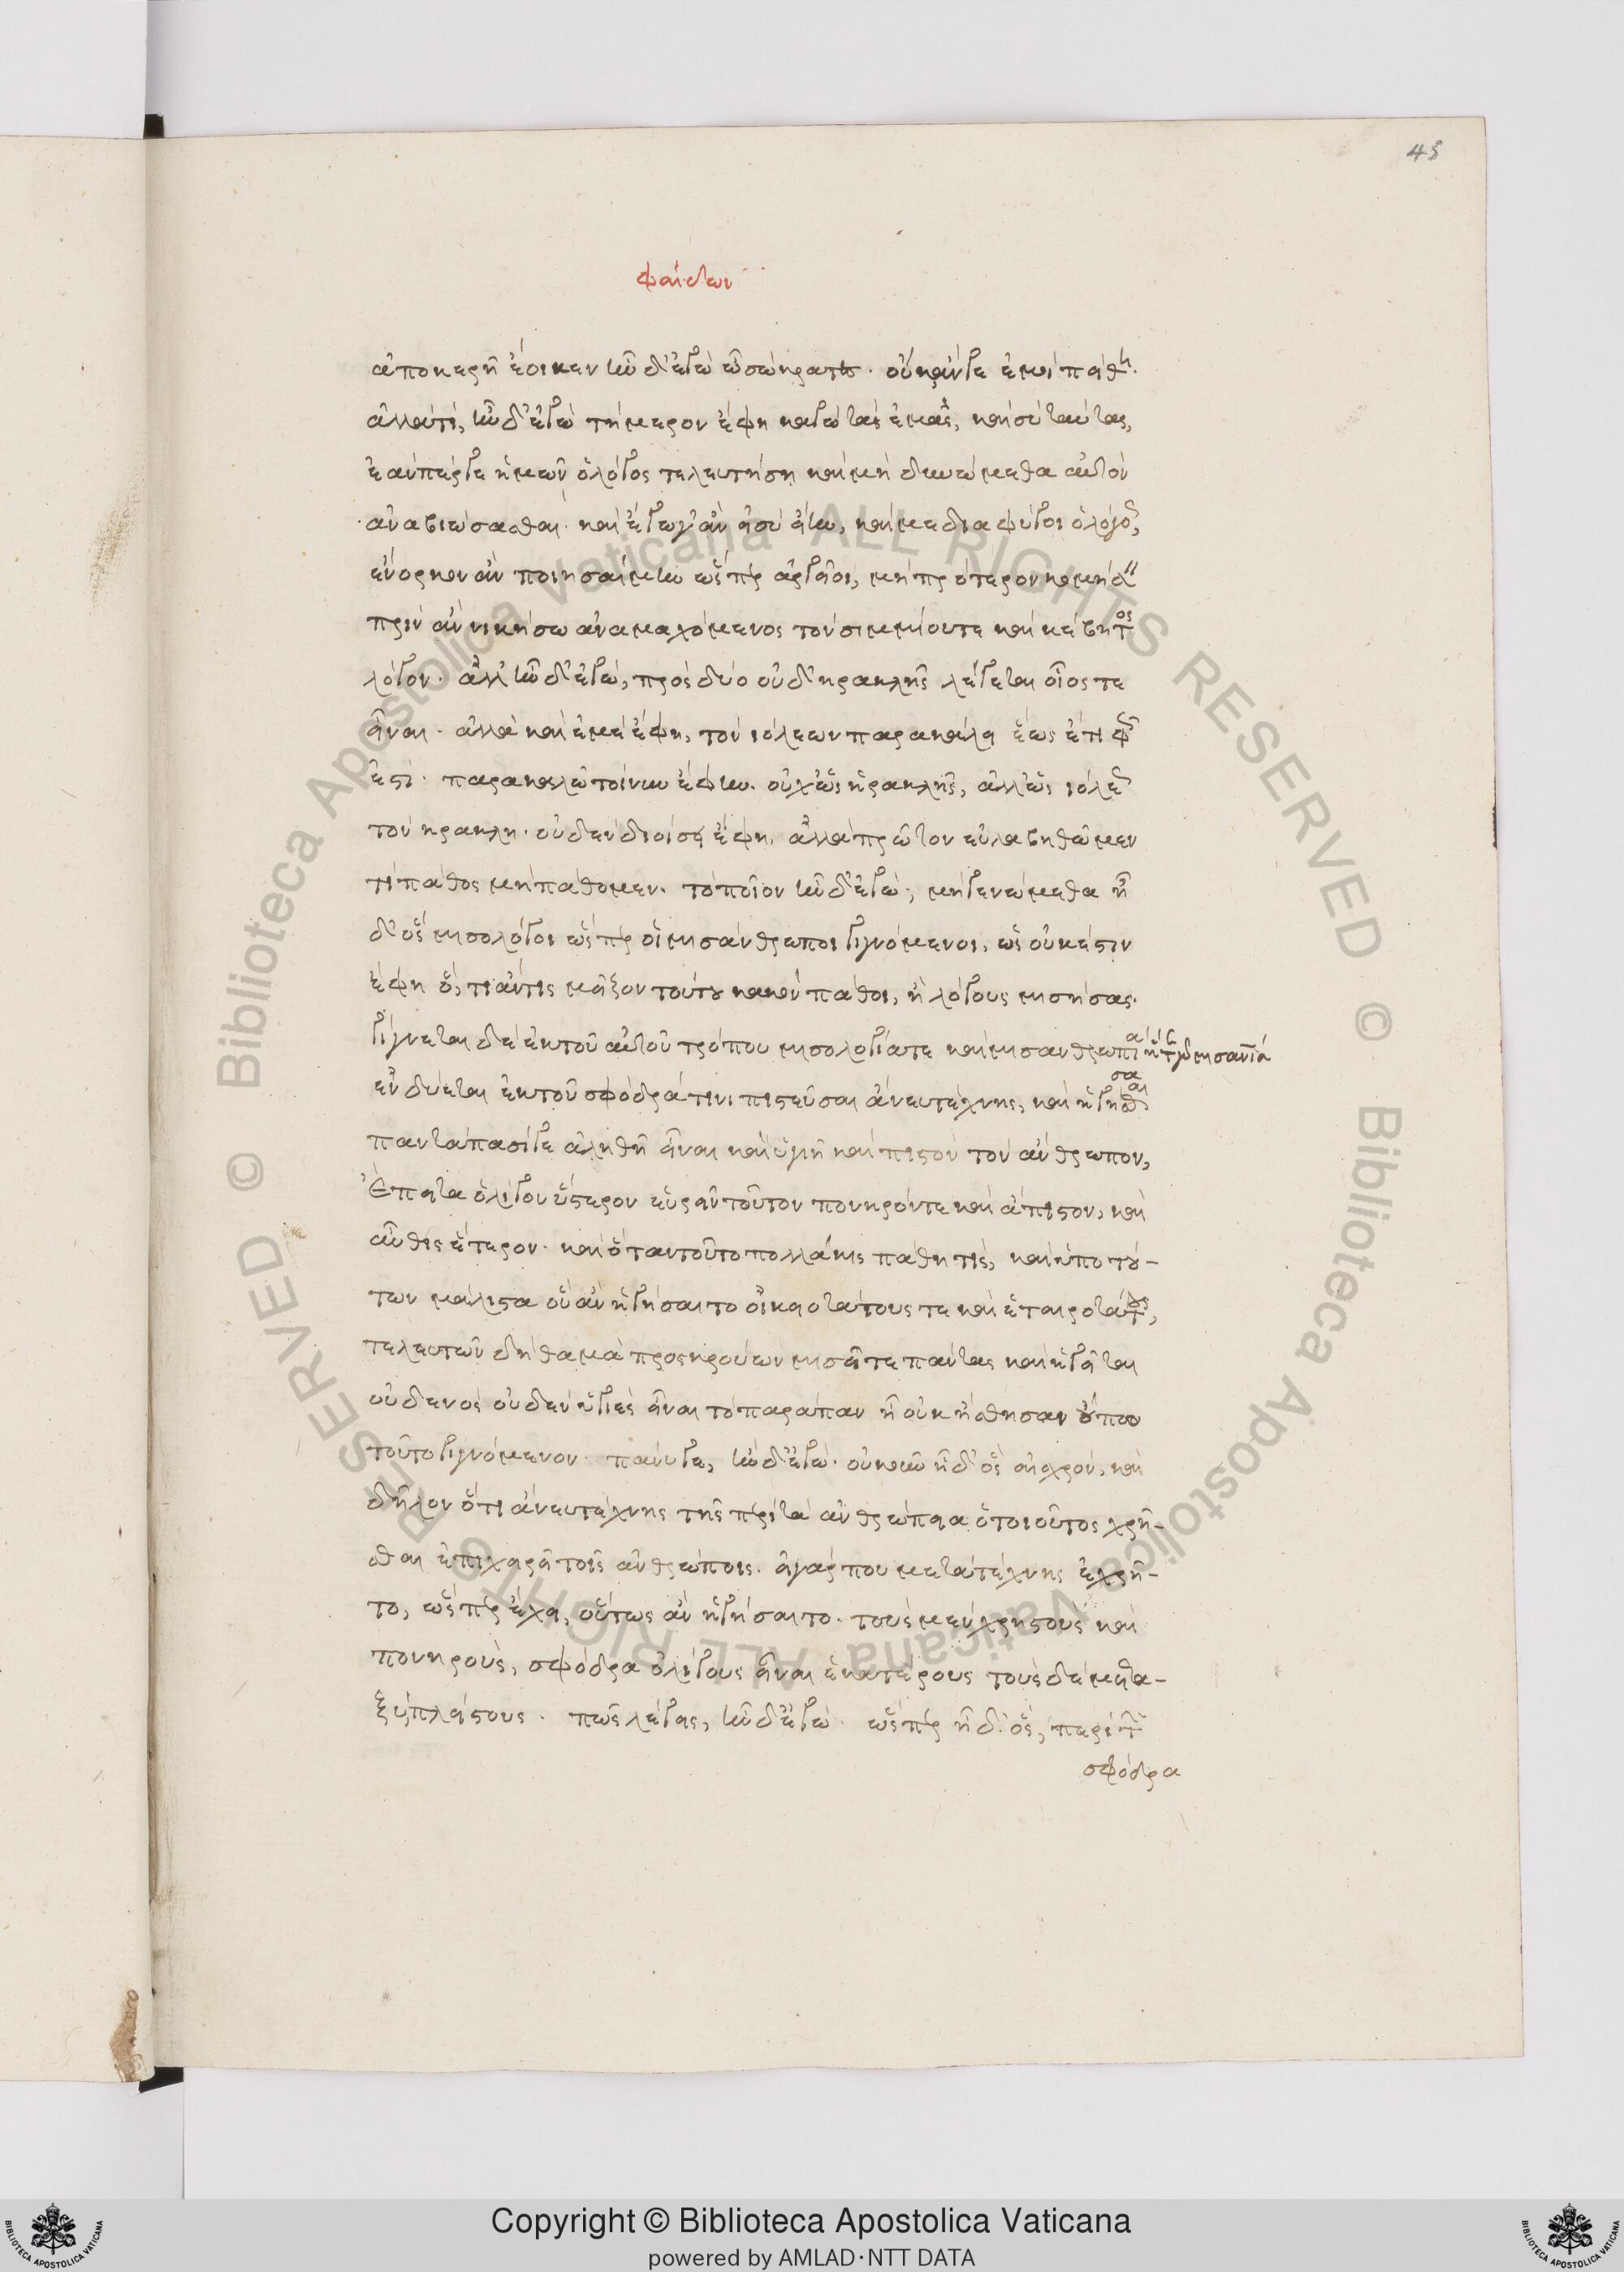 45
φαίδων
ἀποκερῆ ἔοικεν ἦν δ' ἐγὼ ὦ σώκρατες. οὐκ ἄν γε ἐμοὶ πείθῃ.
ἀλλὰ τί, ἦν δ' ἐγὼ τήμερον ἔφη κἀγὼ τὰς ἐμὰς, καὶ σὺ ταύτας,
ἐάνπέρ γε ἡμῶν ὁ λόγος τελευτήσῃ καὶ μὴ δυνώμεθα αὐτὸν
ἀναβιώσασθαι. καὶ ἔγωγ' ἂν εἰ σὺ εἴην, καί με διαφύγοι ὁ λόγος,
ἔνορκον ἂν ποιησαίμην ὥσπερ ἀργεῖοι, μὴ πρότερον κομήσειν
πρὶν ἂν νικήσω ἀναμαχόμενος τὸν σιμμίου τε καὶ κέβητος
λόγον. ἀλλ' ἦν δ' ἐγὼ, πρὸς δύο οὐδ' ἡρακλῆς λέγεται οἷός τε
εἶναι. ἀλλὰ καὶ ἐμὲ ἔφη, τὸν ἰόλεων παρακάλει ἕως ἔτι φῶς
ἐστί. παρακαλῶ τοίνυν ἔφην. οὐχ ὡς ἡρακλῆς, ἀλλ' ὡς ἰόλεως
τὸν ἡρακλῆ. οὐδὲν διοίσει ἔφη. ἀλλὰ πρῶτον εὐλαβηθῶμεν
τι πάθος μὴ πάθομεν. τὸ ποῖον ἦν δ' ἐγώ; μὴ γενώμεθα ἦ
δ' ὃς μισολόγοι ὥσπερ οἱ μισάνθρωποι γιγνόμενοι, ὡς οὐκ ἔστιν
ἔφη ὅ, τι ἄν τις μεῖζον τούτου κακὸν πάθοι, ἢ λόγους μισήσας.
γίγνεται δὲ ἐκ τοῦ αὐτοῦ τρόπου μισολογία τε καὶ μισανθρωπία ἥ τε γὰρ μισανία
ἐνδύεται ἐκ τοῦ σφόδρά τινι πιστεῦσαι ἄνευ τέχνης, καὶ ἡγήσασθαι
πανταπασί γε ἀληθῆ εἶναι καὶ ὑγιῆ καὶ πιστὸν τὸν ἄνθρωπον,
Ἔπειτα ὀλίγον ὕστερον εὑρεῖν τοῦτον πονηρόν τε καὶ ἄπιστον, καὶ
αὖθις ἕτερον. καὶ ὅταν τοῦτο πολλάκις πάθῃ τις, καὶ ὑπο τού-
των μάλιστα οὓ ἂν ἡγήσαιτο οἰκειοτάτους τε καὶ ἑταιροτάτους,
τελευτῶν δὴ θαμὰ προσκρούων μισεῖ τε πάντας καὶ ἡγεῖται
οὐδενὸς οὐδὲν ὑγιὲς εἶναι τὸ παράπαν ἢ οὐκ ᾔσθησαν οὔπου
τοῦτο γιγνόμενον. πάνυ γε, ἦν δ' ἐγώ. οὐκοῦν ἦ δ' ὃς αἰσχρόν, καὶ
δῆλον ὅτι ἄνευ τέχνης τῆς περὶ τὰ ἀνθρώπεια ὁ τοιοῦτος χρῆ-
σθαι ἐπιχειρεῖ τοῖς ἀνθρώποις. εἰ γάρ που μετὰ τέχνης ἐχρῆ-
το, ὥσπερ ἔχει, οὕτως ἂν ἡγήσαιτο. τοὺς μὲν χρηστοὺς καὶ
πονηροὺς, σφόδρα ὀλίγους εἶναι ἑκατέρους τοὺς δὲ μετα-
ξὺ πλείστους. πῶς λέγεις, ἦν δ' ἐγώ. ὥσπερ ἦ δ' ὃς, περὶ τῶν
σφόδρα
Copyright © Biblioteca Apostolica Vaticana
powered by AMLAD·NTT DATA